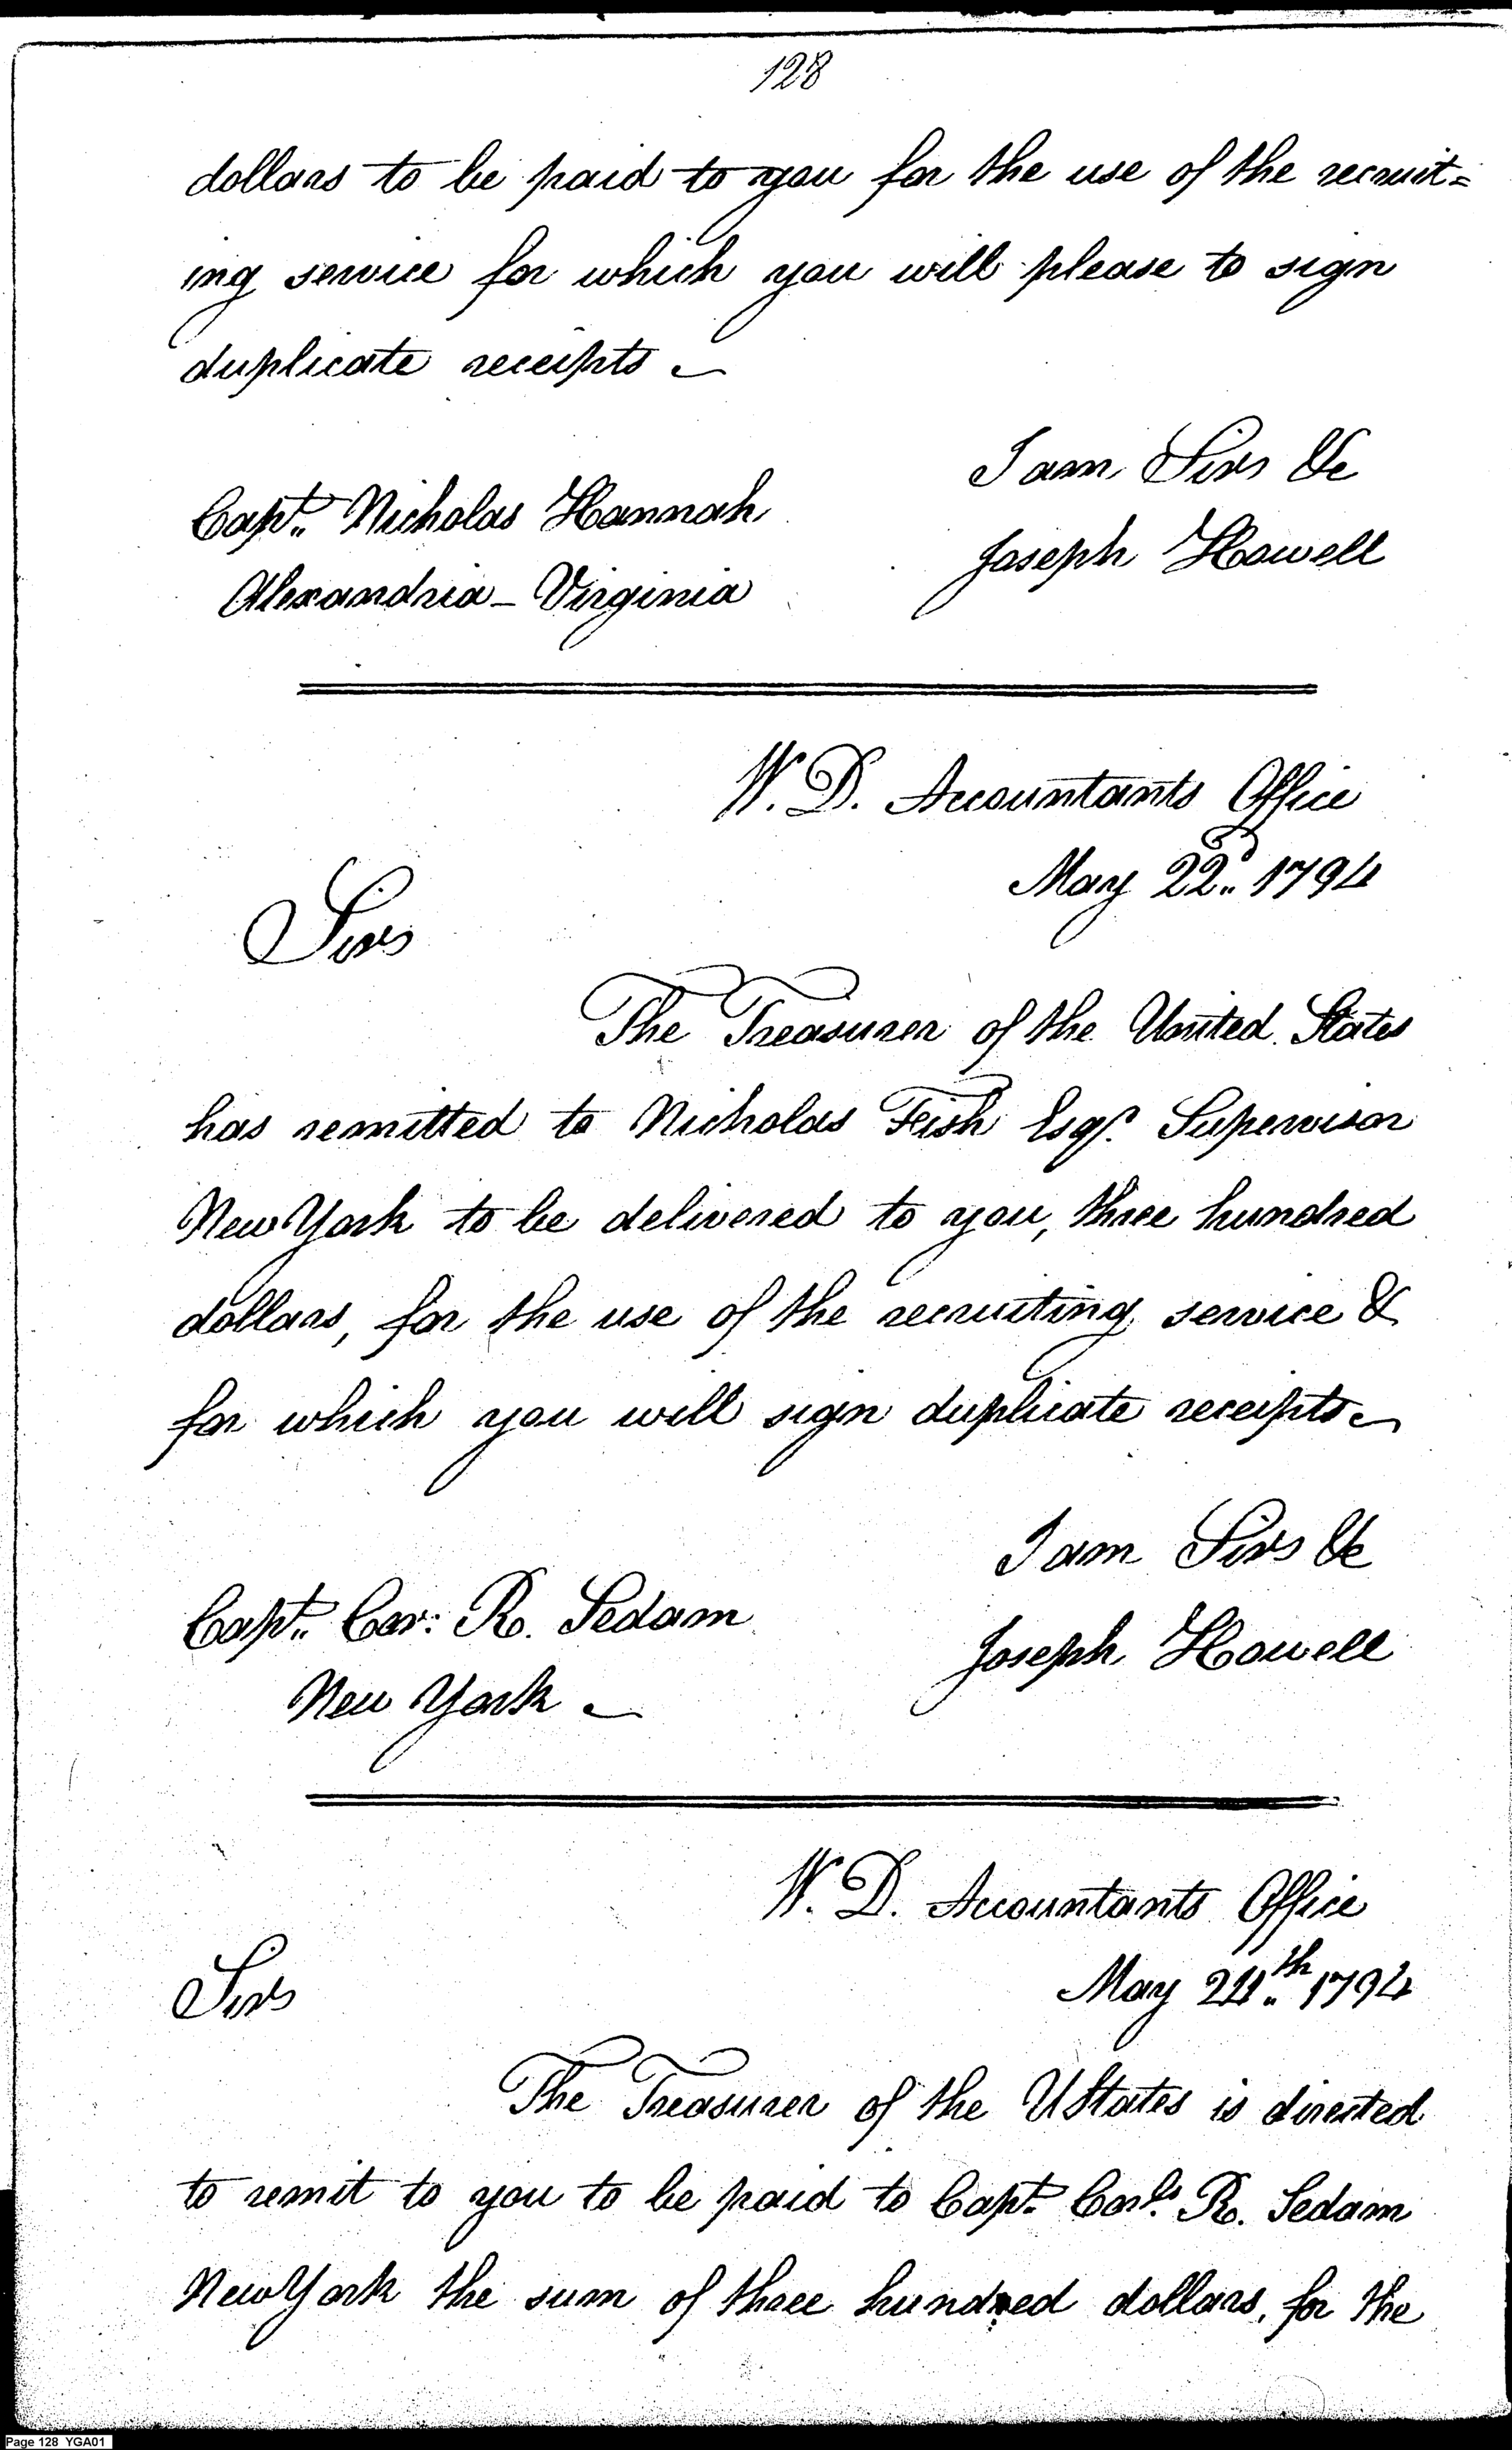 128
dollars to be paid to you for the use of the recruit=
ing service for which you will please to sign
duplicate receipts
I am Sir &c
Capt. Nicholas Hannah
Joseph Howell
Alexandria - Virginia
W. D. Accountants Office
May 22d. 1794
Sir
The Treasurer of the United States
has remitted to Nicholas Fish Esqr. Supervisor
New York to be delivered to you, three hundred
dollars, for the use of the recruiting service &
for which you will sign duplicate receipts
I am Sir &c
Capt. Cor: R. Sedam
Joseph Howell
New York
W. D. Accountants Office
May 24th. 1794
Sir
The Treasurer of the UStates is directed
to remit to you to be paid to Capt. Corls. R. Sedam
New York the sum of three hundred dollars, for the
Page 128 YGA01